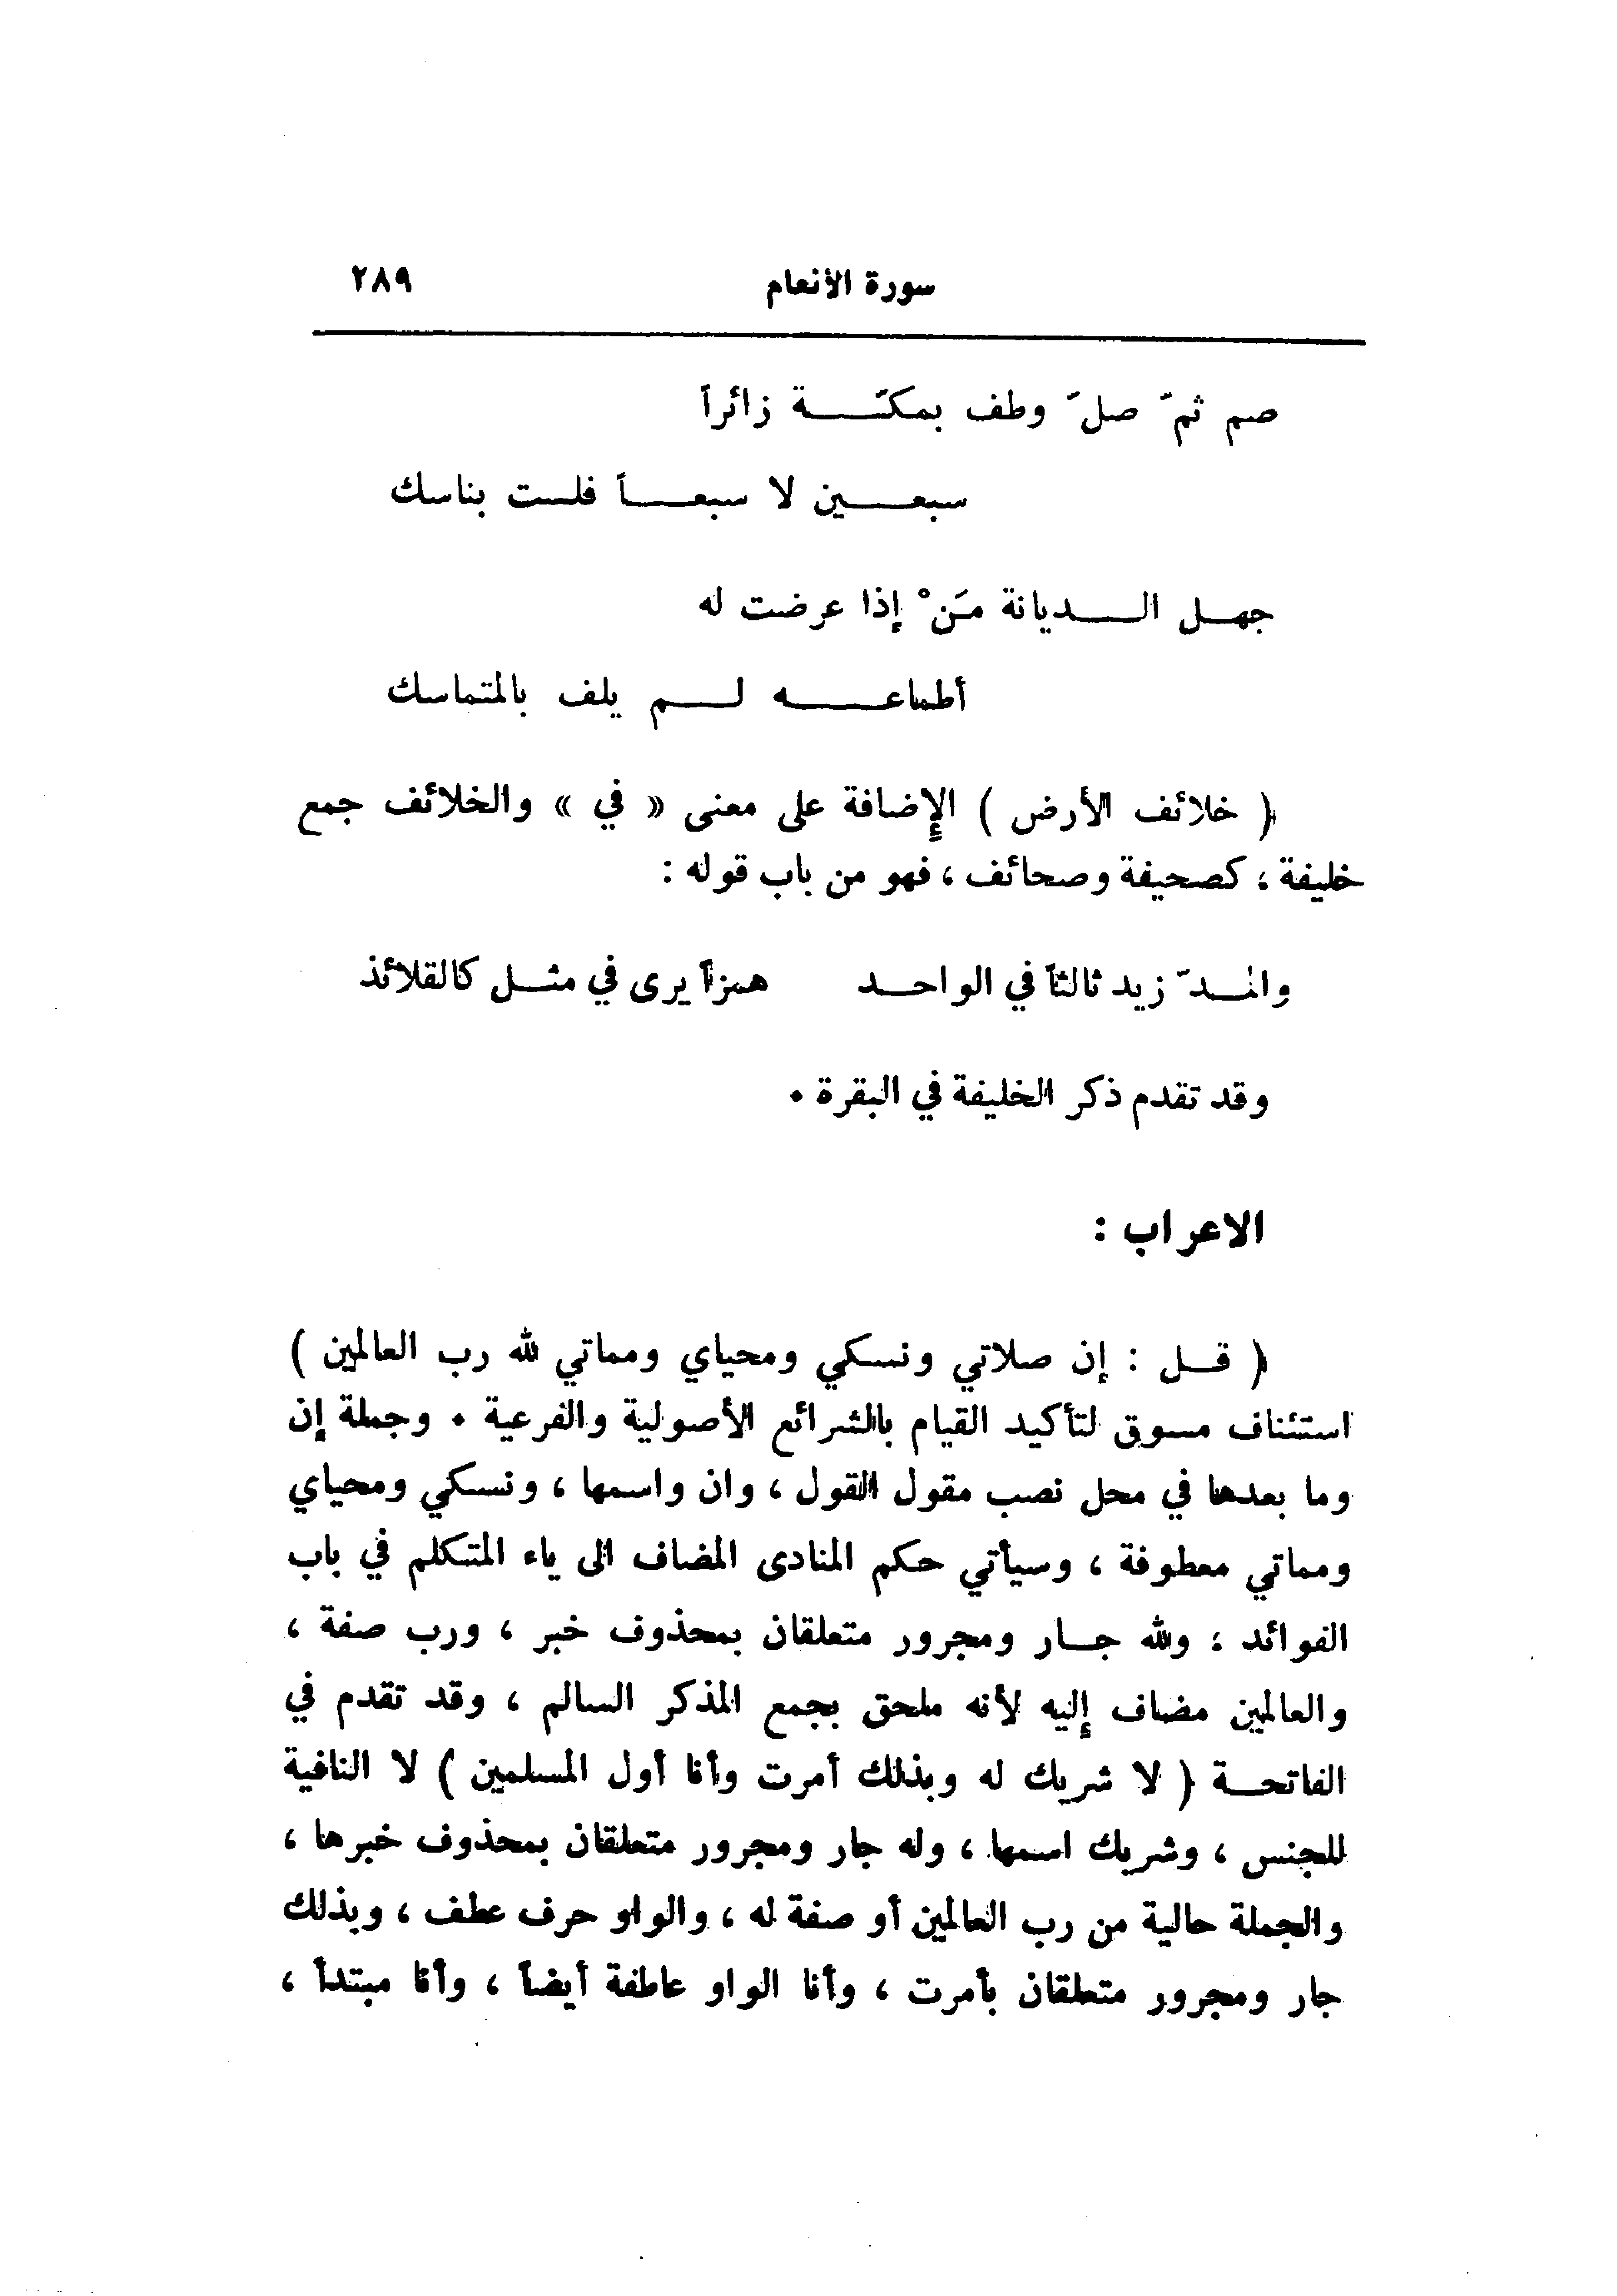 سورة الأنعام ٢٨٩
صم ثمّ صلّ وطف بمكّة زائراً
سبعين لا سبعاً فلست بناسك
جهل الديانة مَنْ إذا عرضت له
أطماعه لم يلف بالمتماسك
( خلائف الأرض ) الإضافة على معنى « في » والخلائف جمع
خليفة ، كصحيفة وصحائف ، فهو من باب قوله :
والمدّ زيد ثالثاً في الواحد همزاً يرى في مثل كالقلائذ
وقد تقدم ذكر الخليفة في البقرة .
الاعراب :
( قل : إن صلاتي ونسكي ومحياي ومماتي لله رب العالمين )
استئناف مسوق لتأكيد القيام بالشرائع الأصولية والفرعية . وجملة إن
وما بعدها في محل نصب مقول القول ، وان واسمها ، ونسكي ومحياي
ومماتي معطوفة ، وسيأتي حكم المنادى المضاف الى ياء المتكلم في باب
الفوائد ؛ ولله جار ومجرور متعلقان بمحذوف خبر ، ورب صفة ،
والعالمين مضاف إليه لأنه ملحق بجمع المذكر السالم ، وقد تقدم في
الفاتحة ( لا شريك له وبذلك أمرت وأنا أول المسلمين ) لا النافية
للجنس ، وشريك اسمها ، وله جار ومجرور متعلقان بمحذوف خبرها ،
والجملة حالية من رب العالمين أو صفة له ، والواو حرف عطف ، وبذلك
جار ومجرور متعلقان بأمرت ، وأنا الواو عاطفة أيضاً ، وأنا مبتدأ ،